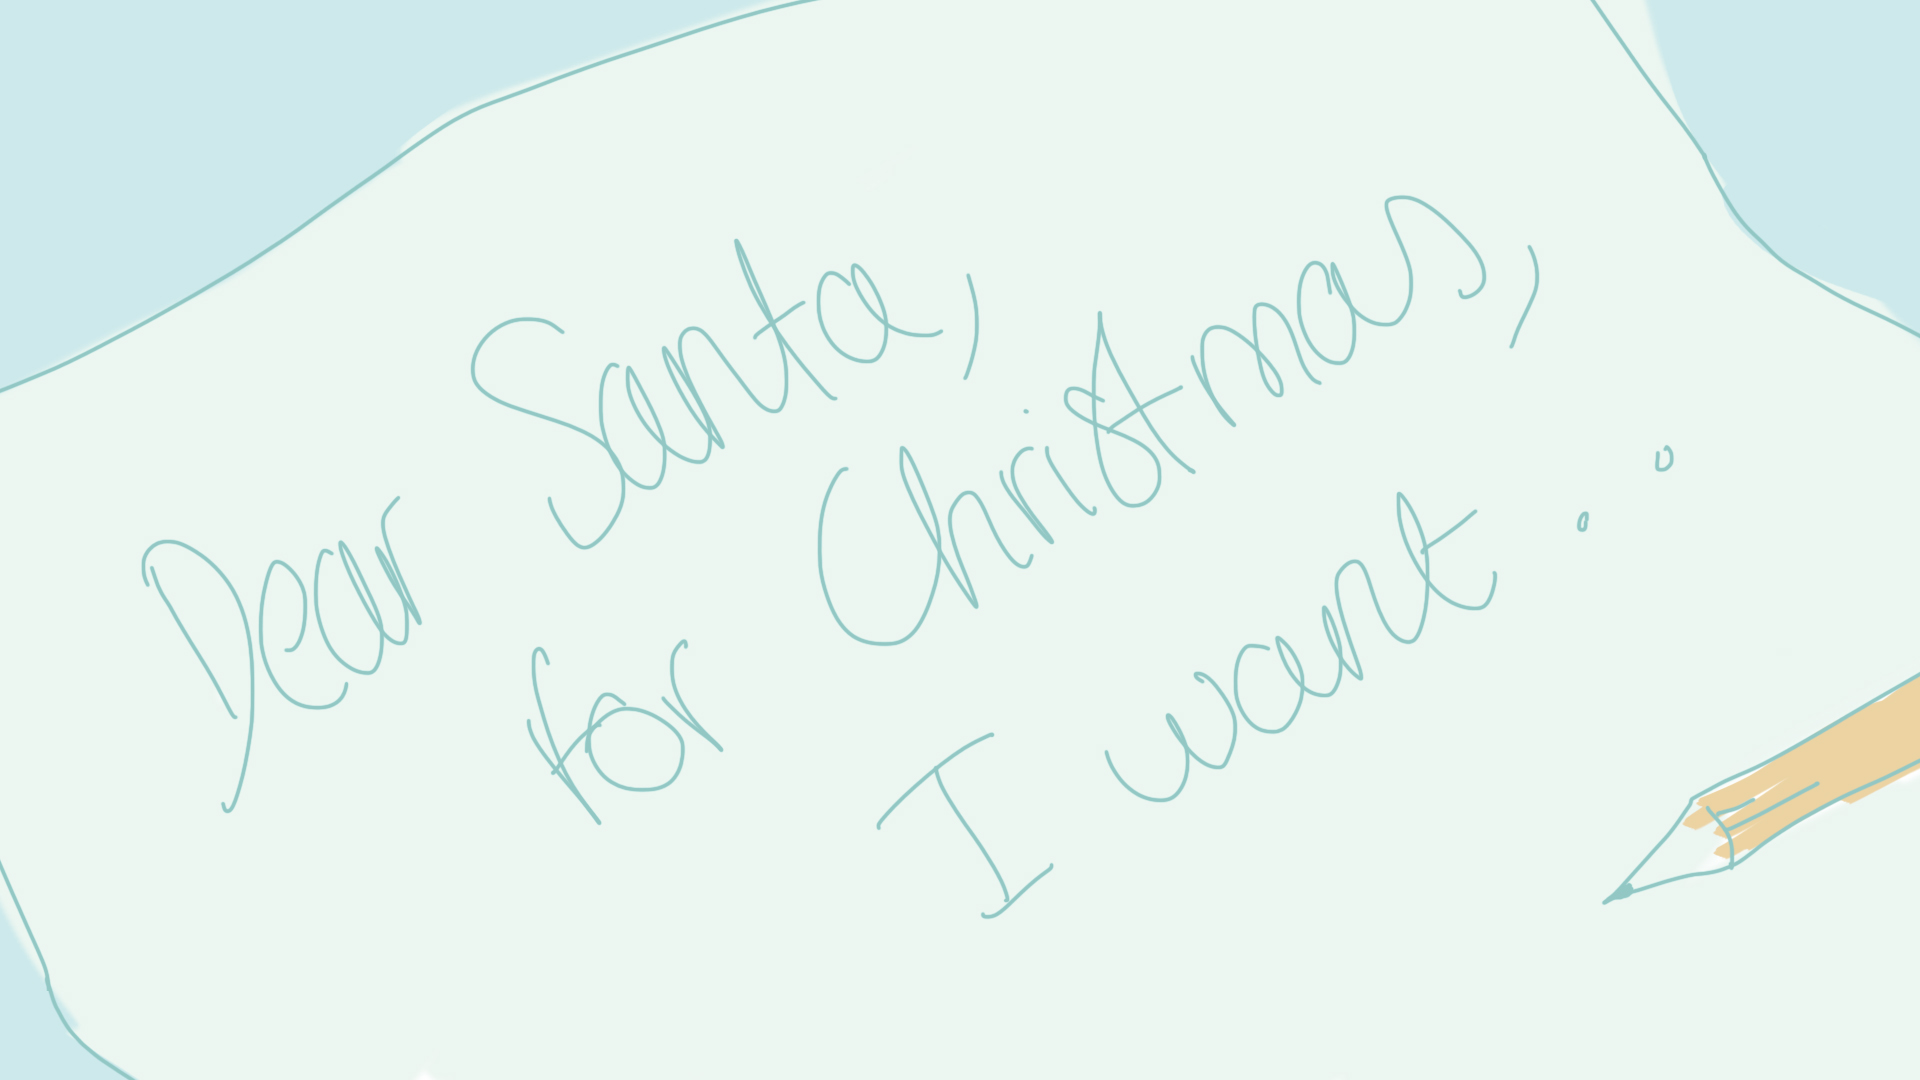 Dear Santa,
for Christmas,
I want :